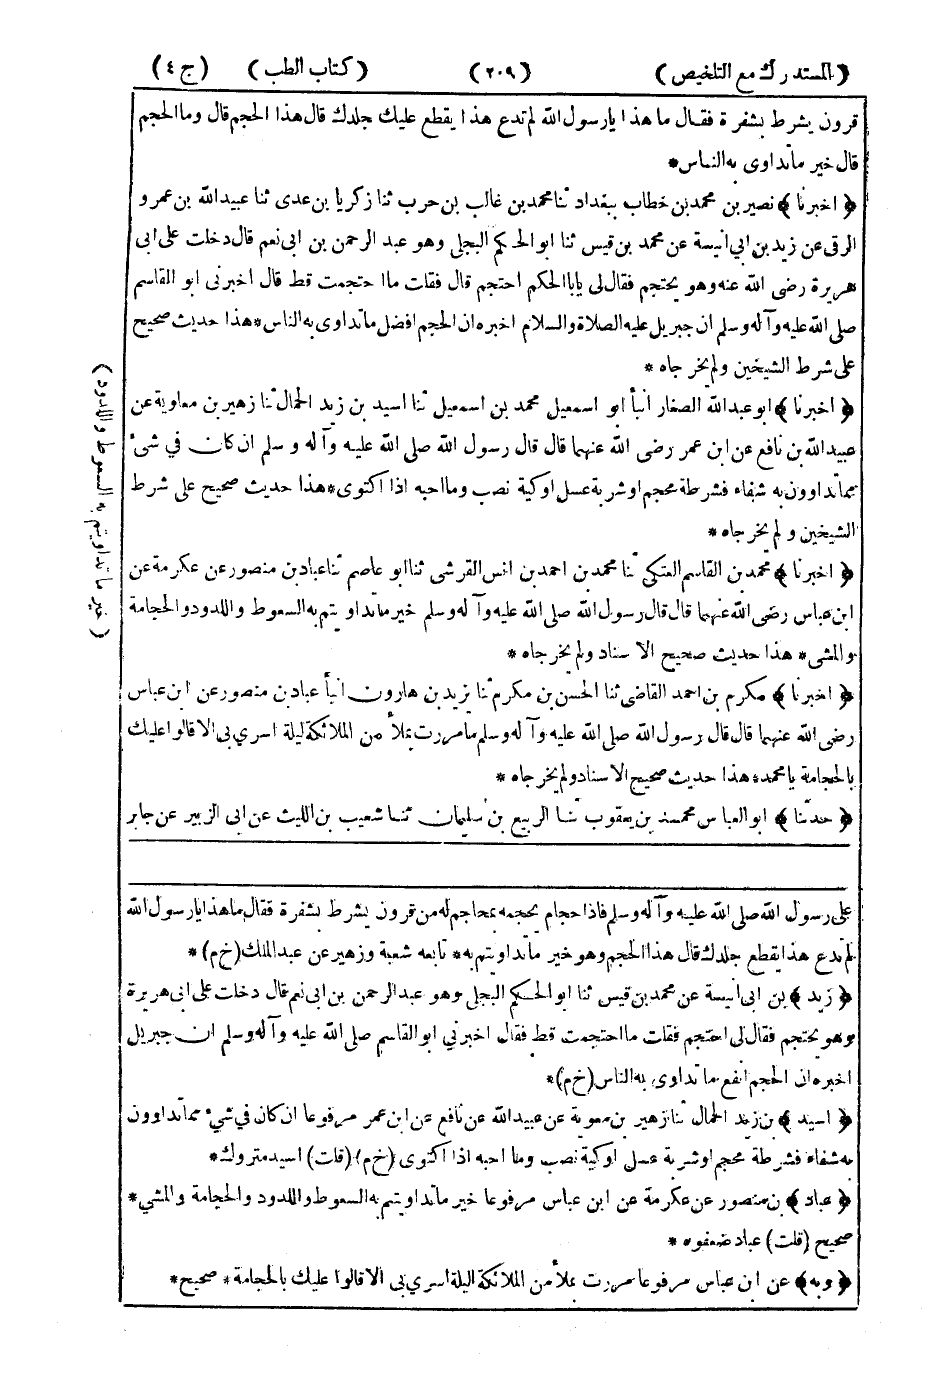 (المستدرك مع التلخيص) (٢٠٩) (كتاب الطب) (ج ٤)
قرون يشرط بشفرة فقال ما هذا يا رسول الله لم تدع هذا يقطع عليك جلدك قال هذا الحجم قال وما الحجم
قال خير ما تداوى به الناس*
﴿ اخبرنا ﴾ نصير بن محمد بن خطاب ببغداد ثنا محمد بن غالب بن حرب ثنا زكريا بن عدى ثنا عبيد الله بن عمرو
الرقى عن زيد بن ابى انيسة عن محمد بن قيس ثنا ابو الحكم البجلى وهو عبد الرحمن بن ابى نعم قال دخلت على ابى
هريرة رضى الله عنه وهو يحتجم فقال لى يا ابا الحكم احتجم قال فقلت ما احتجمت قط قال اخبرنى ابو القاسم
صلى الله عليه وآله وسلم ان جبريل عليه الصلاة والسلام اخبره ان الحجم افضل ما تداوى به الناس*هذا حديث صحيح
على شرط الشيخين ولم يخرجاه *
﴿ اخبرنا ﴾ ابو عبد الله الصفار انبأ ابو اسمعيل محمد بن اسمعيل ثنا اسيد بن زيد الحمال ثنا زهير بن معاوية عن
عبيد الله بن نافع عن ابن عمر رضى الله عنهما قال قال رسول الله صلى الله عليه وآله وسلم ان كان في شىء
مما تداوون به شفاء فشرطة محجم او شربة عسل او كية نصب وما احبه اذا اكتوى*هذا حديث صحيح على شرط
الشيخين ولم يخرجاه *
﴿ اخبرنا ﴾ محمد بن القاسم العتكى ثنا محمد بن احمد بن انس القرشى ثنا ابو عاصم ثنا عباد بن منصور عن عكرمة عن
ابن عباس رضى الله عنهما قال قال رسول الله صلى الله عليه وآله وسلم خير ما تداويتم به السعوط واللدود والحجامة
والمشى* هذا حديث صحيح الاسناد ولم يخرجاه *
﴿ اخبرنا ﴾ مكرم بن احمد القاضى ثنا الحسن بن مكرم ثنا يزيد بن هارون انبأ عباد بن منصور عن ابن عباس
رضى الله عنهما قال قال رسول الله صلى الله عليه وآله وسلم ما مررت بملأ من الملائكة ليلة اسري بى الا قالوا عليك
بالحجامة يا محمد* هذا حديث صحيح الاسناد ولم يخرجاه *
﴿ حدثنا ﴾ ابو العباس محمد بن يعقوب ثنا الربيع بن سليمان ثنا شعيب بن الليث عن ابى الزبير عن جابر
(خير ما تداويتم به السعوط واللدود)
على رسول الله صلى الله عليه وآله وسلم فاذا حجام يحجمه بمحاجم له من قرون يشرط بشفرة فقال ما هذا يا رسول الله
لم تدع هذا يقطع جلدك قال هذا الحجم وهو خير ما تداويتم به* تابعه شعبة وزهير عن عبد الملك (خ م) *
﴿ زيد ﴾ بن ابى انيسة عن محمد بن قيس ثنا ابو الحكم البجلى وهو عبد الرحمن بن ابى نعم قال دخلت على ابى هريرة
وهو يحتجم فقال لى احتجم فقلت ما احتجمت قط فقال اخبرني ابو القاسم صلى الله عليه وآله وسلم ان جبريل
اخبره ان الحجم انفع ما تداوى به الناس (خ م)*
﴿ اسيد ﴾ بن زيد الحمال ثنا زهير بن معوية عن عبيد الله عن نافع عن ابن عمر مرفوعا ان كان في شىء مما تداوون
به شفاء فشرطة محجم او شربة عسل او كية نصب وما احبه اذا اكتوى (خ م) (قلت) اسيد متروك*
﴿ عباد ﴾ بن منصور عن عكرمة عن ابن عباس مرفوعا خير ما تداويتم به السعوط واللدود والحجامة والمشي*
صحيح (قلت) عباد ضعفوه *
﴿ وبه ﴾ عن ابن عباس مرفوعا مررت بملأ من الملائكة ليلة اسري بى الا قالوا عليك بالحجامة* صحيح*